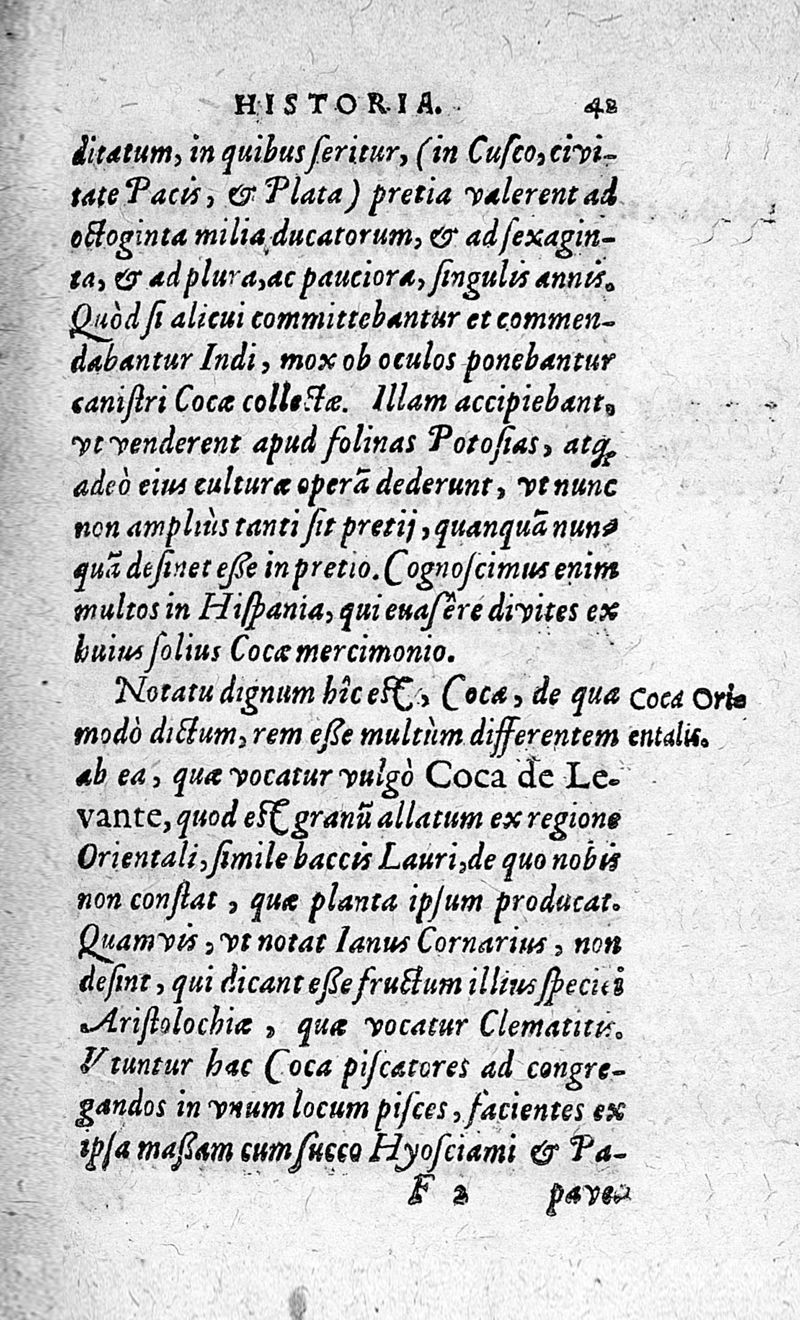 HISTORIA. 42
ditatum, in quibus seritur, (in Cusco, civi-
tate Pacis, & Plata) pretia valerent ad
octoginta milia ducatorum, & ad sexagin-
ta, & ad plura, ac pauciora, singulis annis.
Quòd si alicui committebantur et commen-
dabantur Indi, mox ob oculos ponebantur
canistri Cocæ collectæ. Illam accipiebant,
vt venderent apud folinas Potosias, atq;
adeò eius culturæ operã dederunt, vt nunc
non ampliùs tanti sit pretij, quanquã nun-
quã desinet esse in pretio. Cognoscimus enim
multos in Hispania, qui euasêre divites ex
huius solius Cocæ mercimonio.
Notatu dignum hîc est, Coca, de qua
Coca Ori-
modò dictum, rem esse multùm differentem
entalis.
ab ea, quæ vocatur vulgò Coca de Le-
vante, quod est granũ allatum ex regione
Orientali, simile baccis Lauri, de quo nobis
non constat, quæ planta ipsum producat.
Quamvis, vt notat Ianus Cornarius, non
desint, qui dicant esse fructum illius speciei
Aristolochiæ, quæ vocatur Clematitis.
Vtuntur hac Coca piscatores ad congre-
gandos in vnum locum pisces, facientes ex
ipsa massam cum succo Hyosciami & Pa-
F 2 pave-